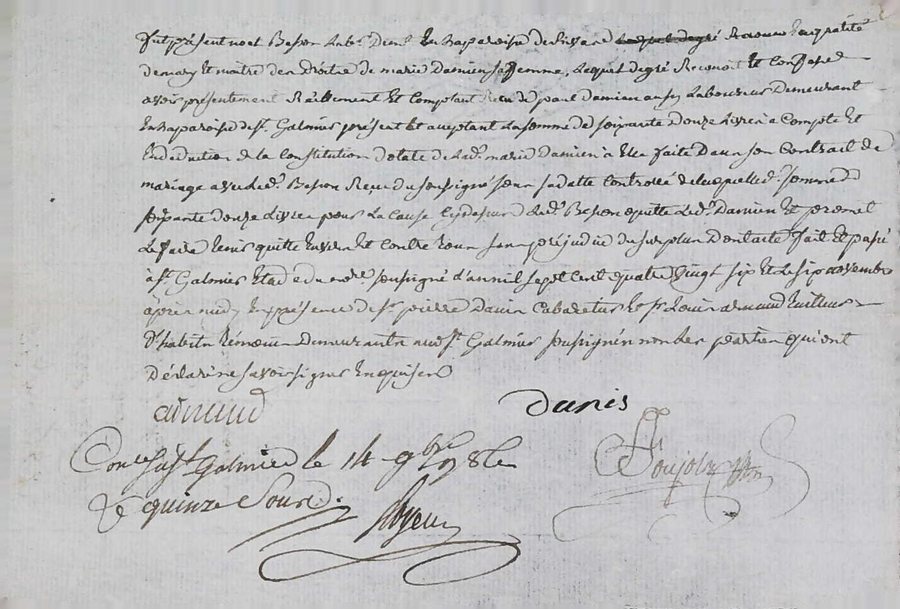 fut présent noel Besson Lab.r Dem.t En la paroisse de Lequel de gré Reconnu En qualité
de mary Et maitre des Droits de marie Damien sa femme, Lequel de gré Reconoit Et Confesse
avoir présentement Réellement Et Comptant Recu de paul Damien aussy Laboureur Demeurant
En la paroisse de S.t Galmier présent Et acceptant La somme de soixante Douze Livres à Compte Et
En deduction de la Constitution dotale de lad.e marie Damien à Elle faite Dans son Contrat de
mariage avec led.t Besson Recu du soussigné sous sa datte Controlé de laquelle d.e somme de
soixante douze Livres pour La Cause Cy dessus Led.t Besson quitte Led.t Damien Et promet
Le faire tenir quitte Envers Et Contre tous sans préjudice du surplus Dont acte fait Et passé
à S.t Galmier Etude du no.re soussigné L'an mil sept Cent quatre Vingt six Et Le six novembre
après midy En présence de S.r pierre Danis Cabaretier Et S.r Louis armand tailleur
D'habits Témoins Demeurants aud. S.t Galmier soussignés non les parties qui ont
Déclaré ne savoir signer Enquises
armand
Danis
Con.lé à S.t Galmier le 14 9bre 1786
R quinze Sous